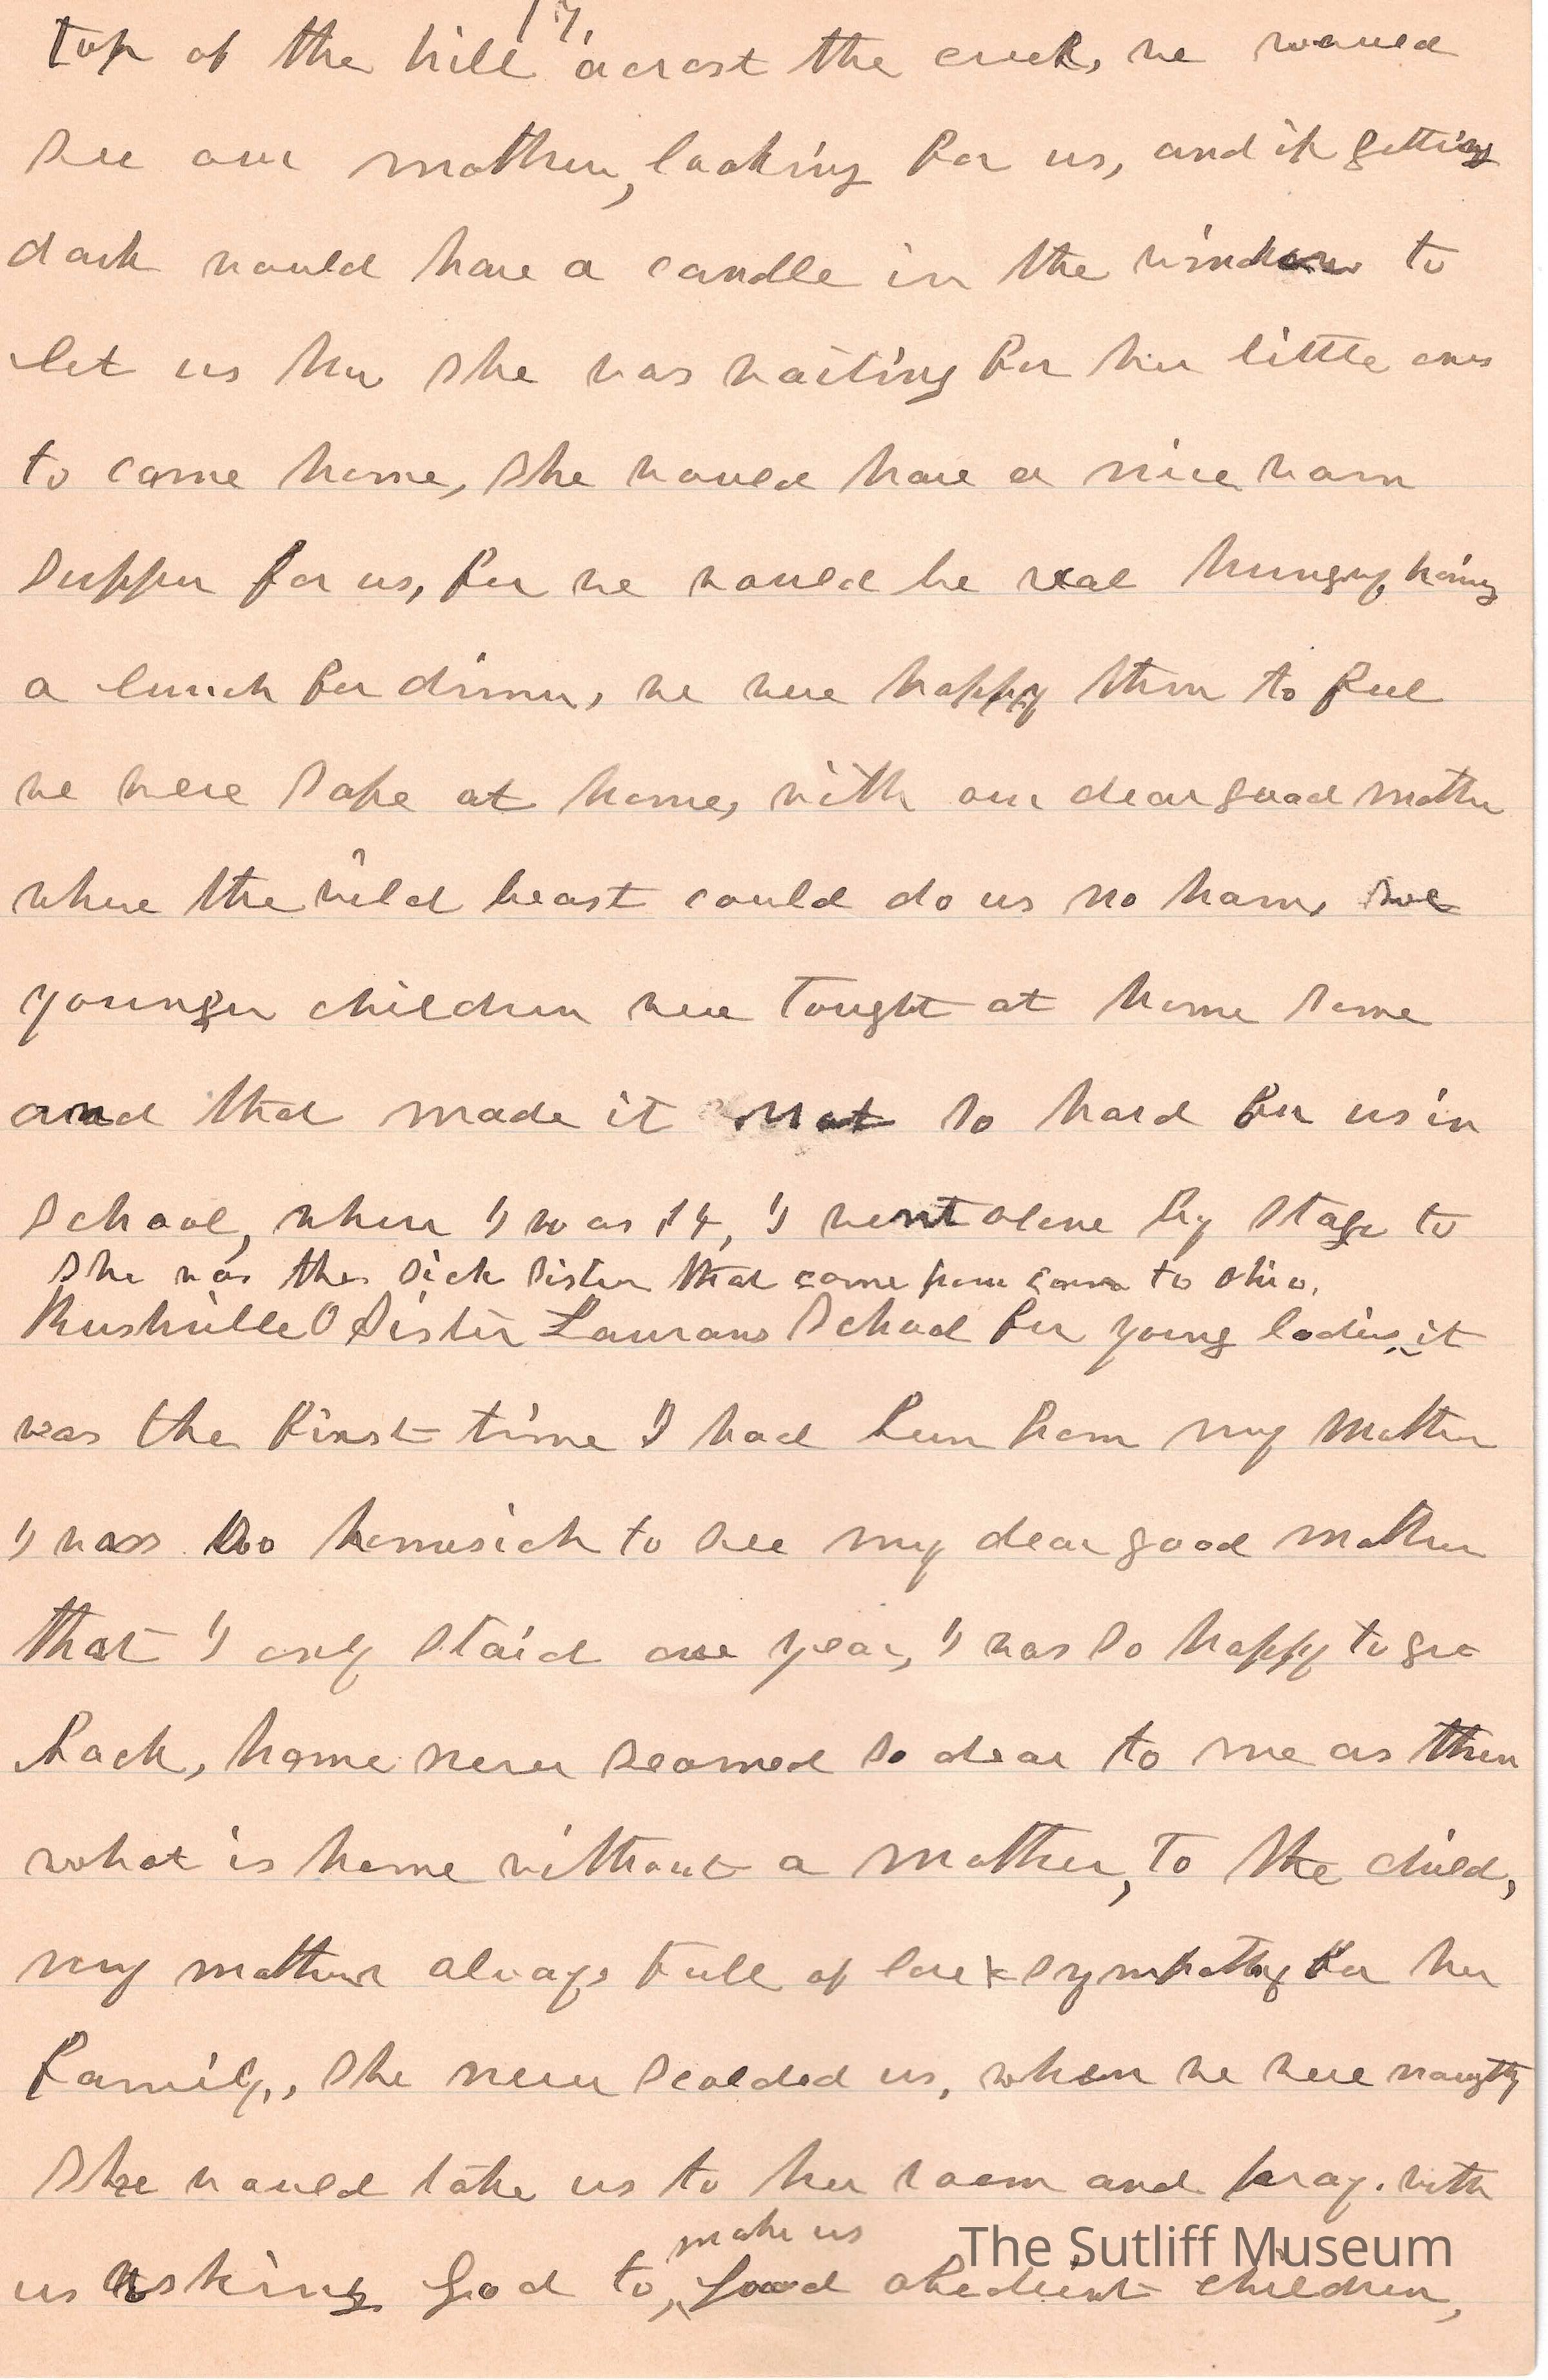 17,
top of the hill acrost the creek, we would
see our mother, looking for us, and if getting
dark would have a candle in the window to
let us know she was waiting for her little ones
to come home, she would have a nice warm
supper for us, for we would be real hungry, having
a lunch for dinner, we were happy then to feel
we were safe at home, with our dear good mother
where the wild beast could do us no harm, we
younger children were tought at home some
and that made it not so hard for us in
School, when I was 14, I went alone by stage to
she was the sick sister that came from conn to Ohio.
Rushville O Sister Laurans School for young ladies, it
was the first time I had been from my Mother
I was so homesick to see my dear good mother
that I only staid one year, I was so happy to get
back, home never seamed so dear to me as then
what is home without a mother, to the child,
my mother always full of love & sympathy for her
family, she never scolded us, when we were naughty
she would take us to her room and pray. with
make us
us asking God to, good obedient children,
The Sutliff Museum